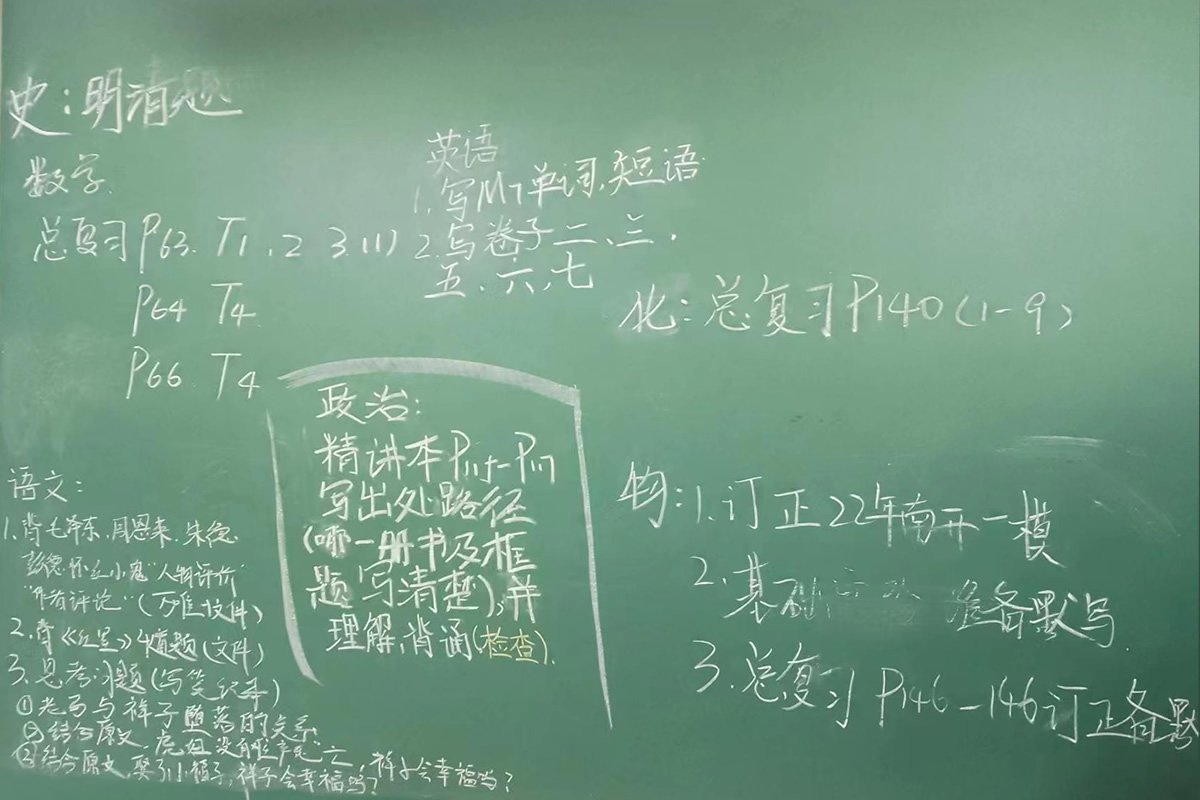 史：明清题
数学
总复习 P63. T1, 2 3.(1)
P64 T4
P66 T4
英语
1.写M7单词,短语
2.写卷子二、三、
五、六、七
化：总复习P140(1-9)
政治：
精讲本P115-P117
写出处路径
(哪一册书及框
题写清楚),并
理解,背诵(检查).
语文：
1.背毛泽东,周恩来.朱德.
彭德怀.红小鬼"人物评价"
"作者评论"(文件)
2.背《红星》4道题(文件)
3.思考问题(写笔记本)
①老马与祥子堕落的关系
②结合原文,虎妞没有难产死亡,祥子会幸福吗?
③结合原文,娶了小福子,祥子会幸福吗?
物：1.订正22年南开一模
2.基础 准备默写.
3.总复习 P146-146订正备默